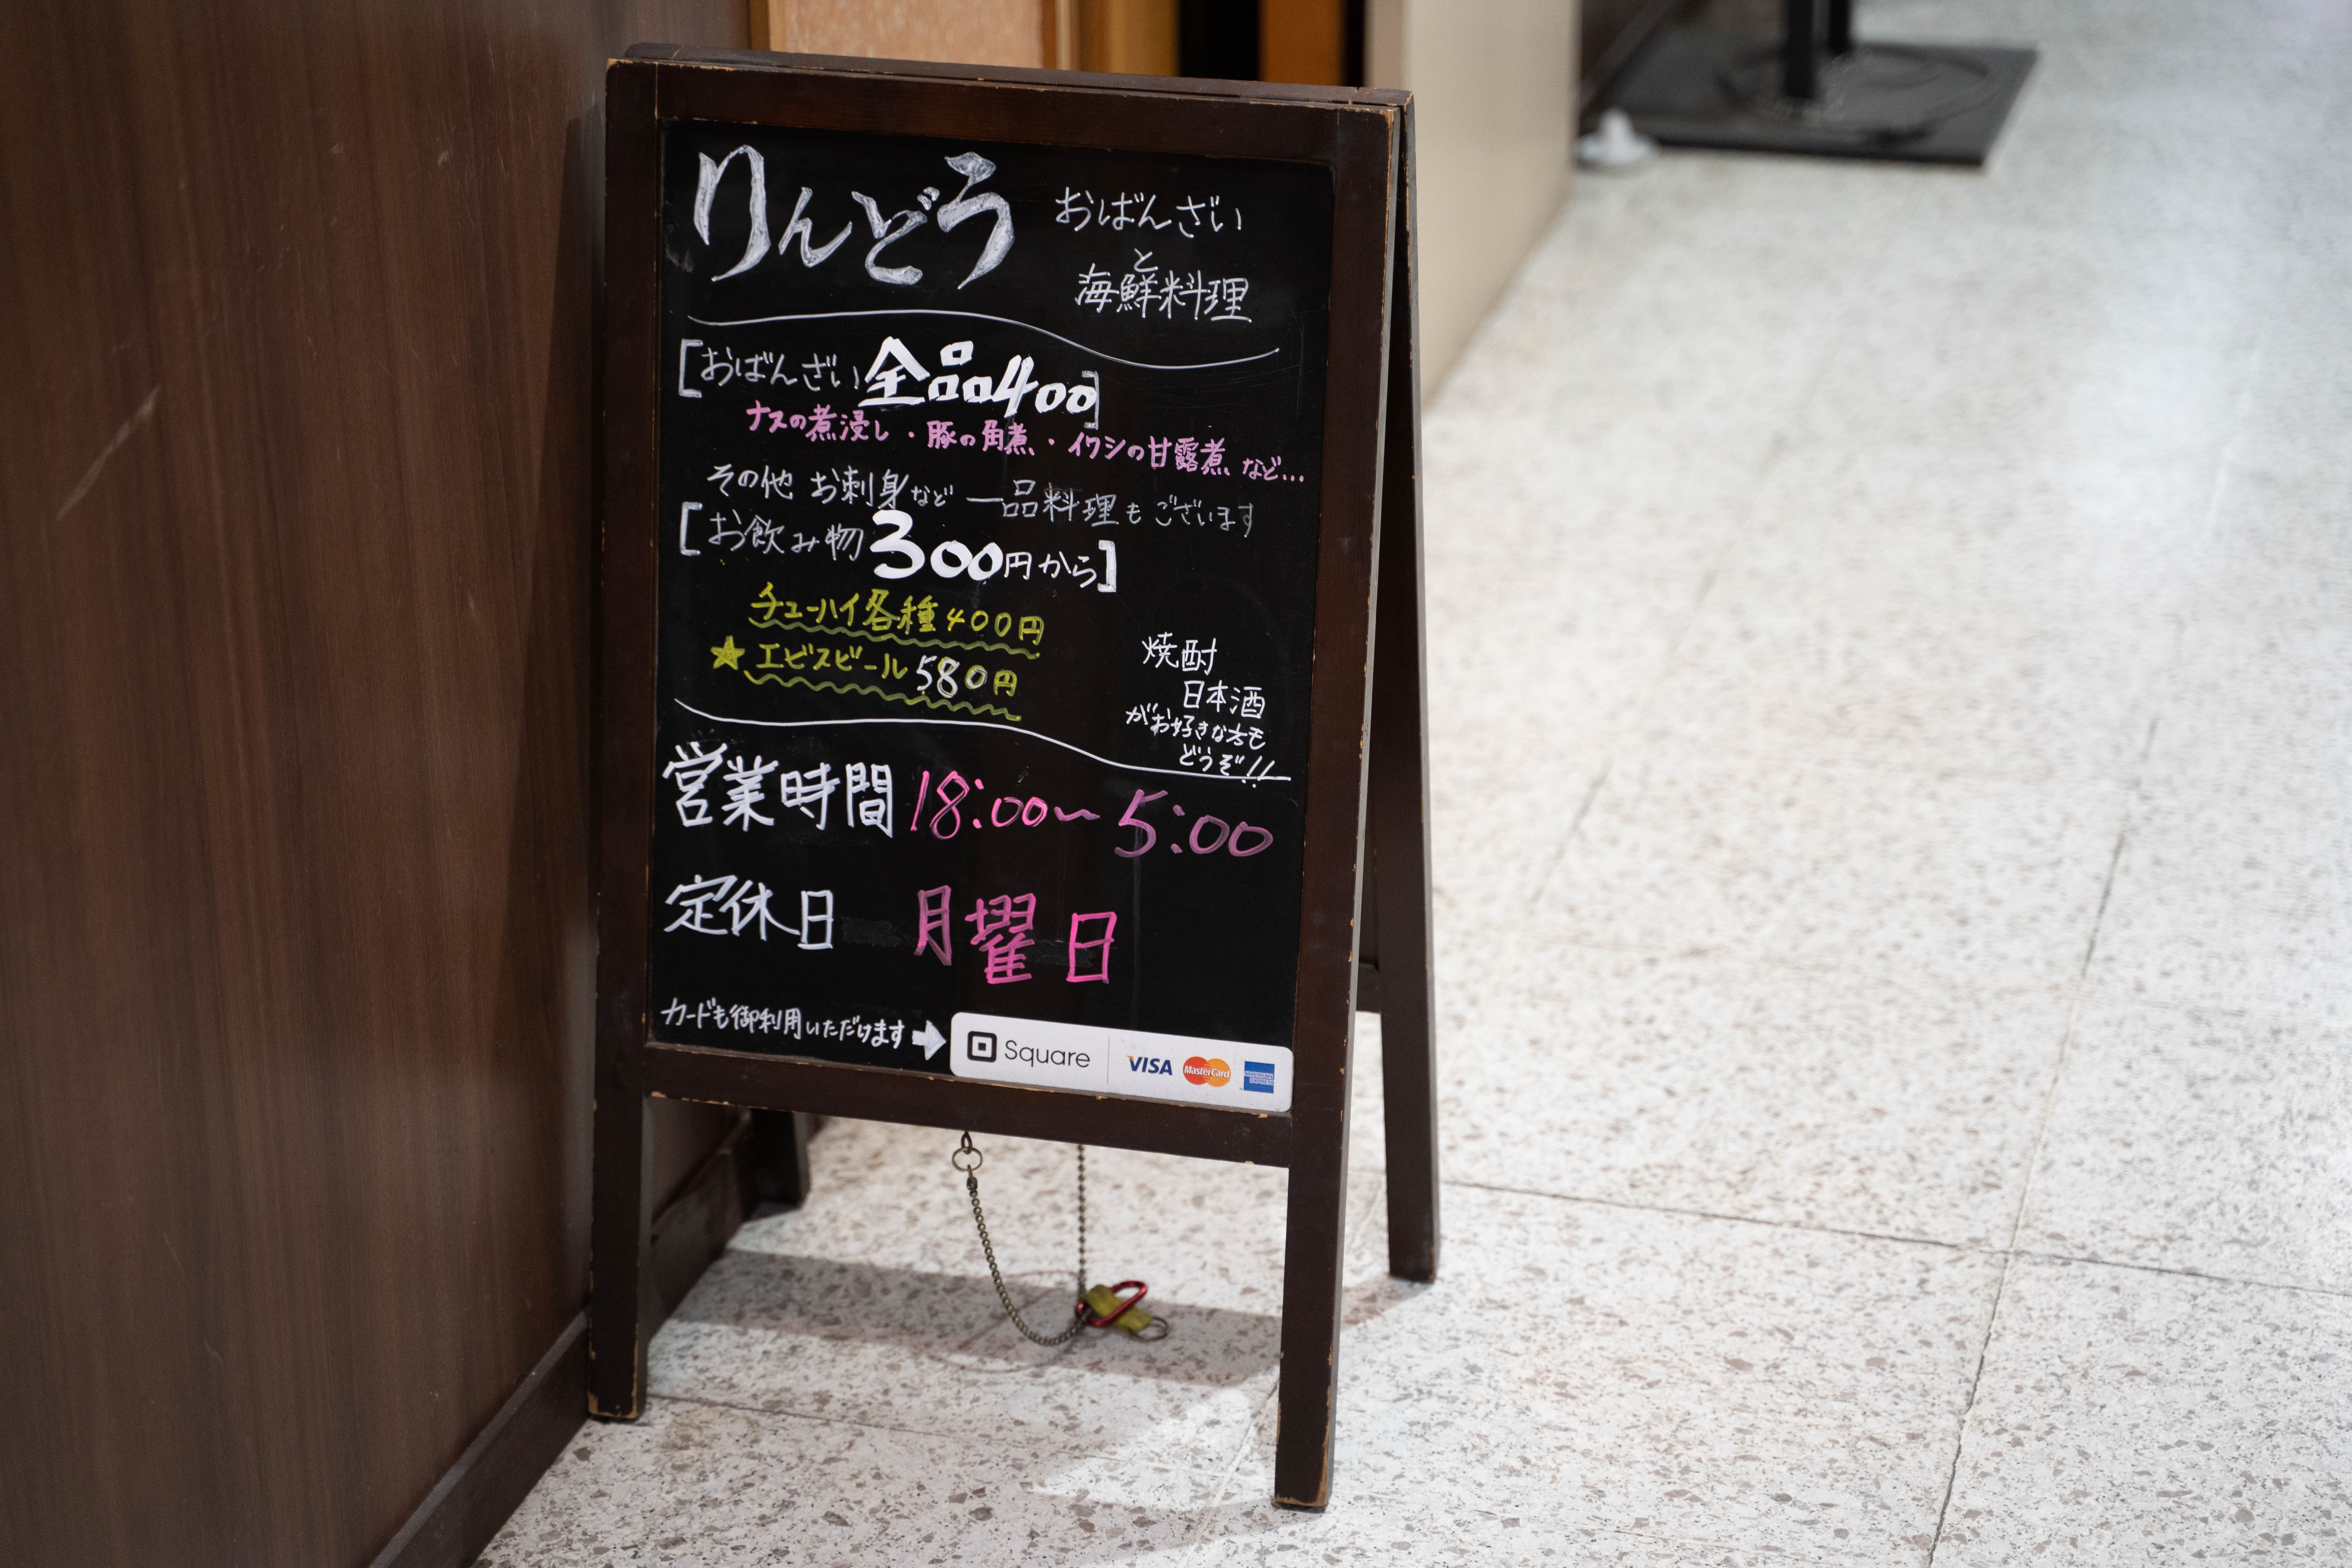 りんどう
おばんざい
と
海鮮料理
[おばんざい全品400]
ナスの煮浸し・豚の角煮・イワシの甘露煮 など...
その他 お刺身など 一品料理もございます
[お飲み物300円から]
チューハイ各種400円
★エビスビール580円
焼酎
日本酒
がお好きな方も
どうぞ!!
営業時間 18:00~5:00
定休日 月曜日
カードも御利用いただけます→
Square VISA MasterCard AMERICAN EXPRESS